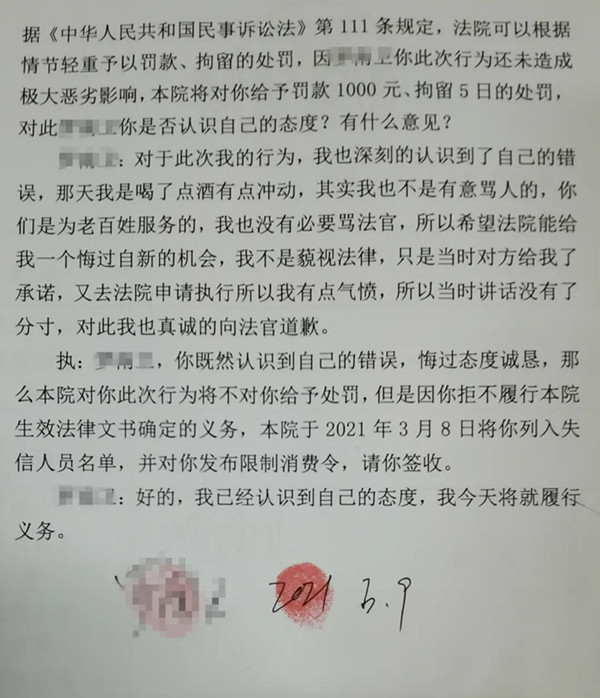 据《中华人民共和国民事诉讼法》第 111 条规定，法院可以根据
情节轻重予以罚款、拘留的处罚，因你此次行为还未造成
极大恶劣影响，本院将对你给予罚款 1000 元、拘留 5 日的处罚，
对此你是否认识自己的态度？有什么意见？
：对于此次我的行为，我也深刻的认识到了自己的错
误，那天我是喝了点酒有点冲动，其实我也不是有意骂人的，你
们是为老百姓服务的，我也没有必要骂法官，所以希望法院能给
我一个悔过自新的机会，我不是藐视法律，只是当时对方给我了
承诺，又去法院申请执行所以我有点气愤，所以当时讲话没有了
分寸，对此我也真诚的向法官道歉。
执：，你既然认识到自己的错误，悔过态度诚恳，那
么本院对你此次行为将不对你给予处罚，但是因你拒不履行本院
生效法律文书确定的义务，本院于 2021 年 3 月 8 日将你列入失
信人员名单，并对你发布限制消费令，请你签收。
：好的，我已经认识到自己的态度，我今天将就履行
义务。
2021